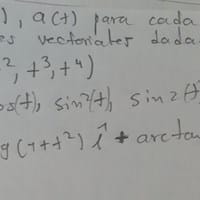 ), a(t) para cada
es vectoriales dada
², t³, t⁴)
os(t), sin²(t), sin2(t)
g(1+t²) î + arctan